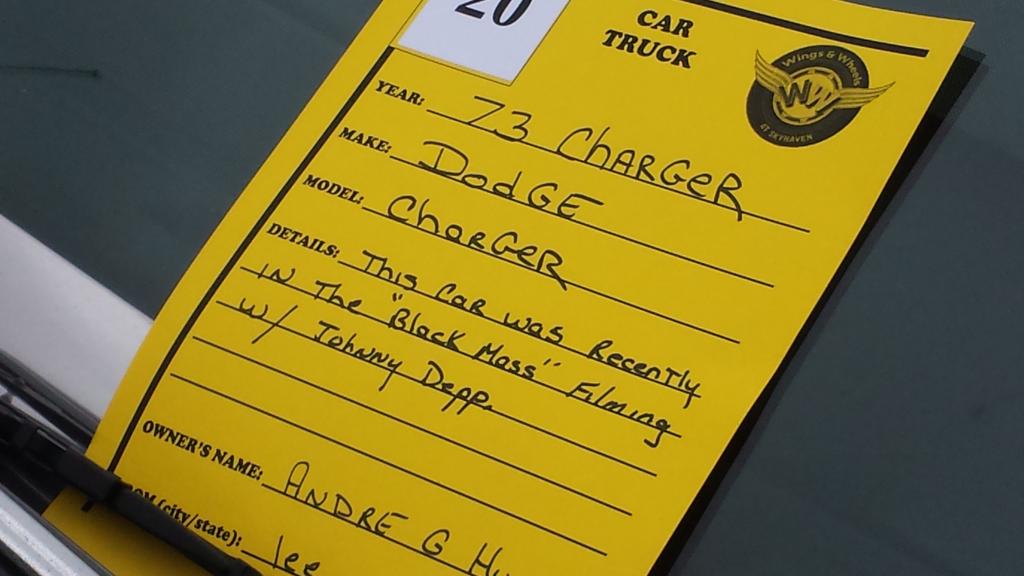 20
CAR
TRUCK
Wings & Wheels
W
AT SKYHAVEN
YEAR: 73 ChARGeR
MAKE: DodGE
MODEL: ChARGeR
DETAILS: This Car was Recently
IN The "Black Mass" Filming
w/ Johnny Depp.
OWNER'S NAME: ANDRE G
(city/state): lee